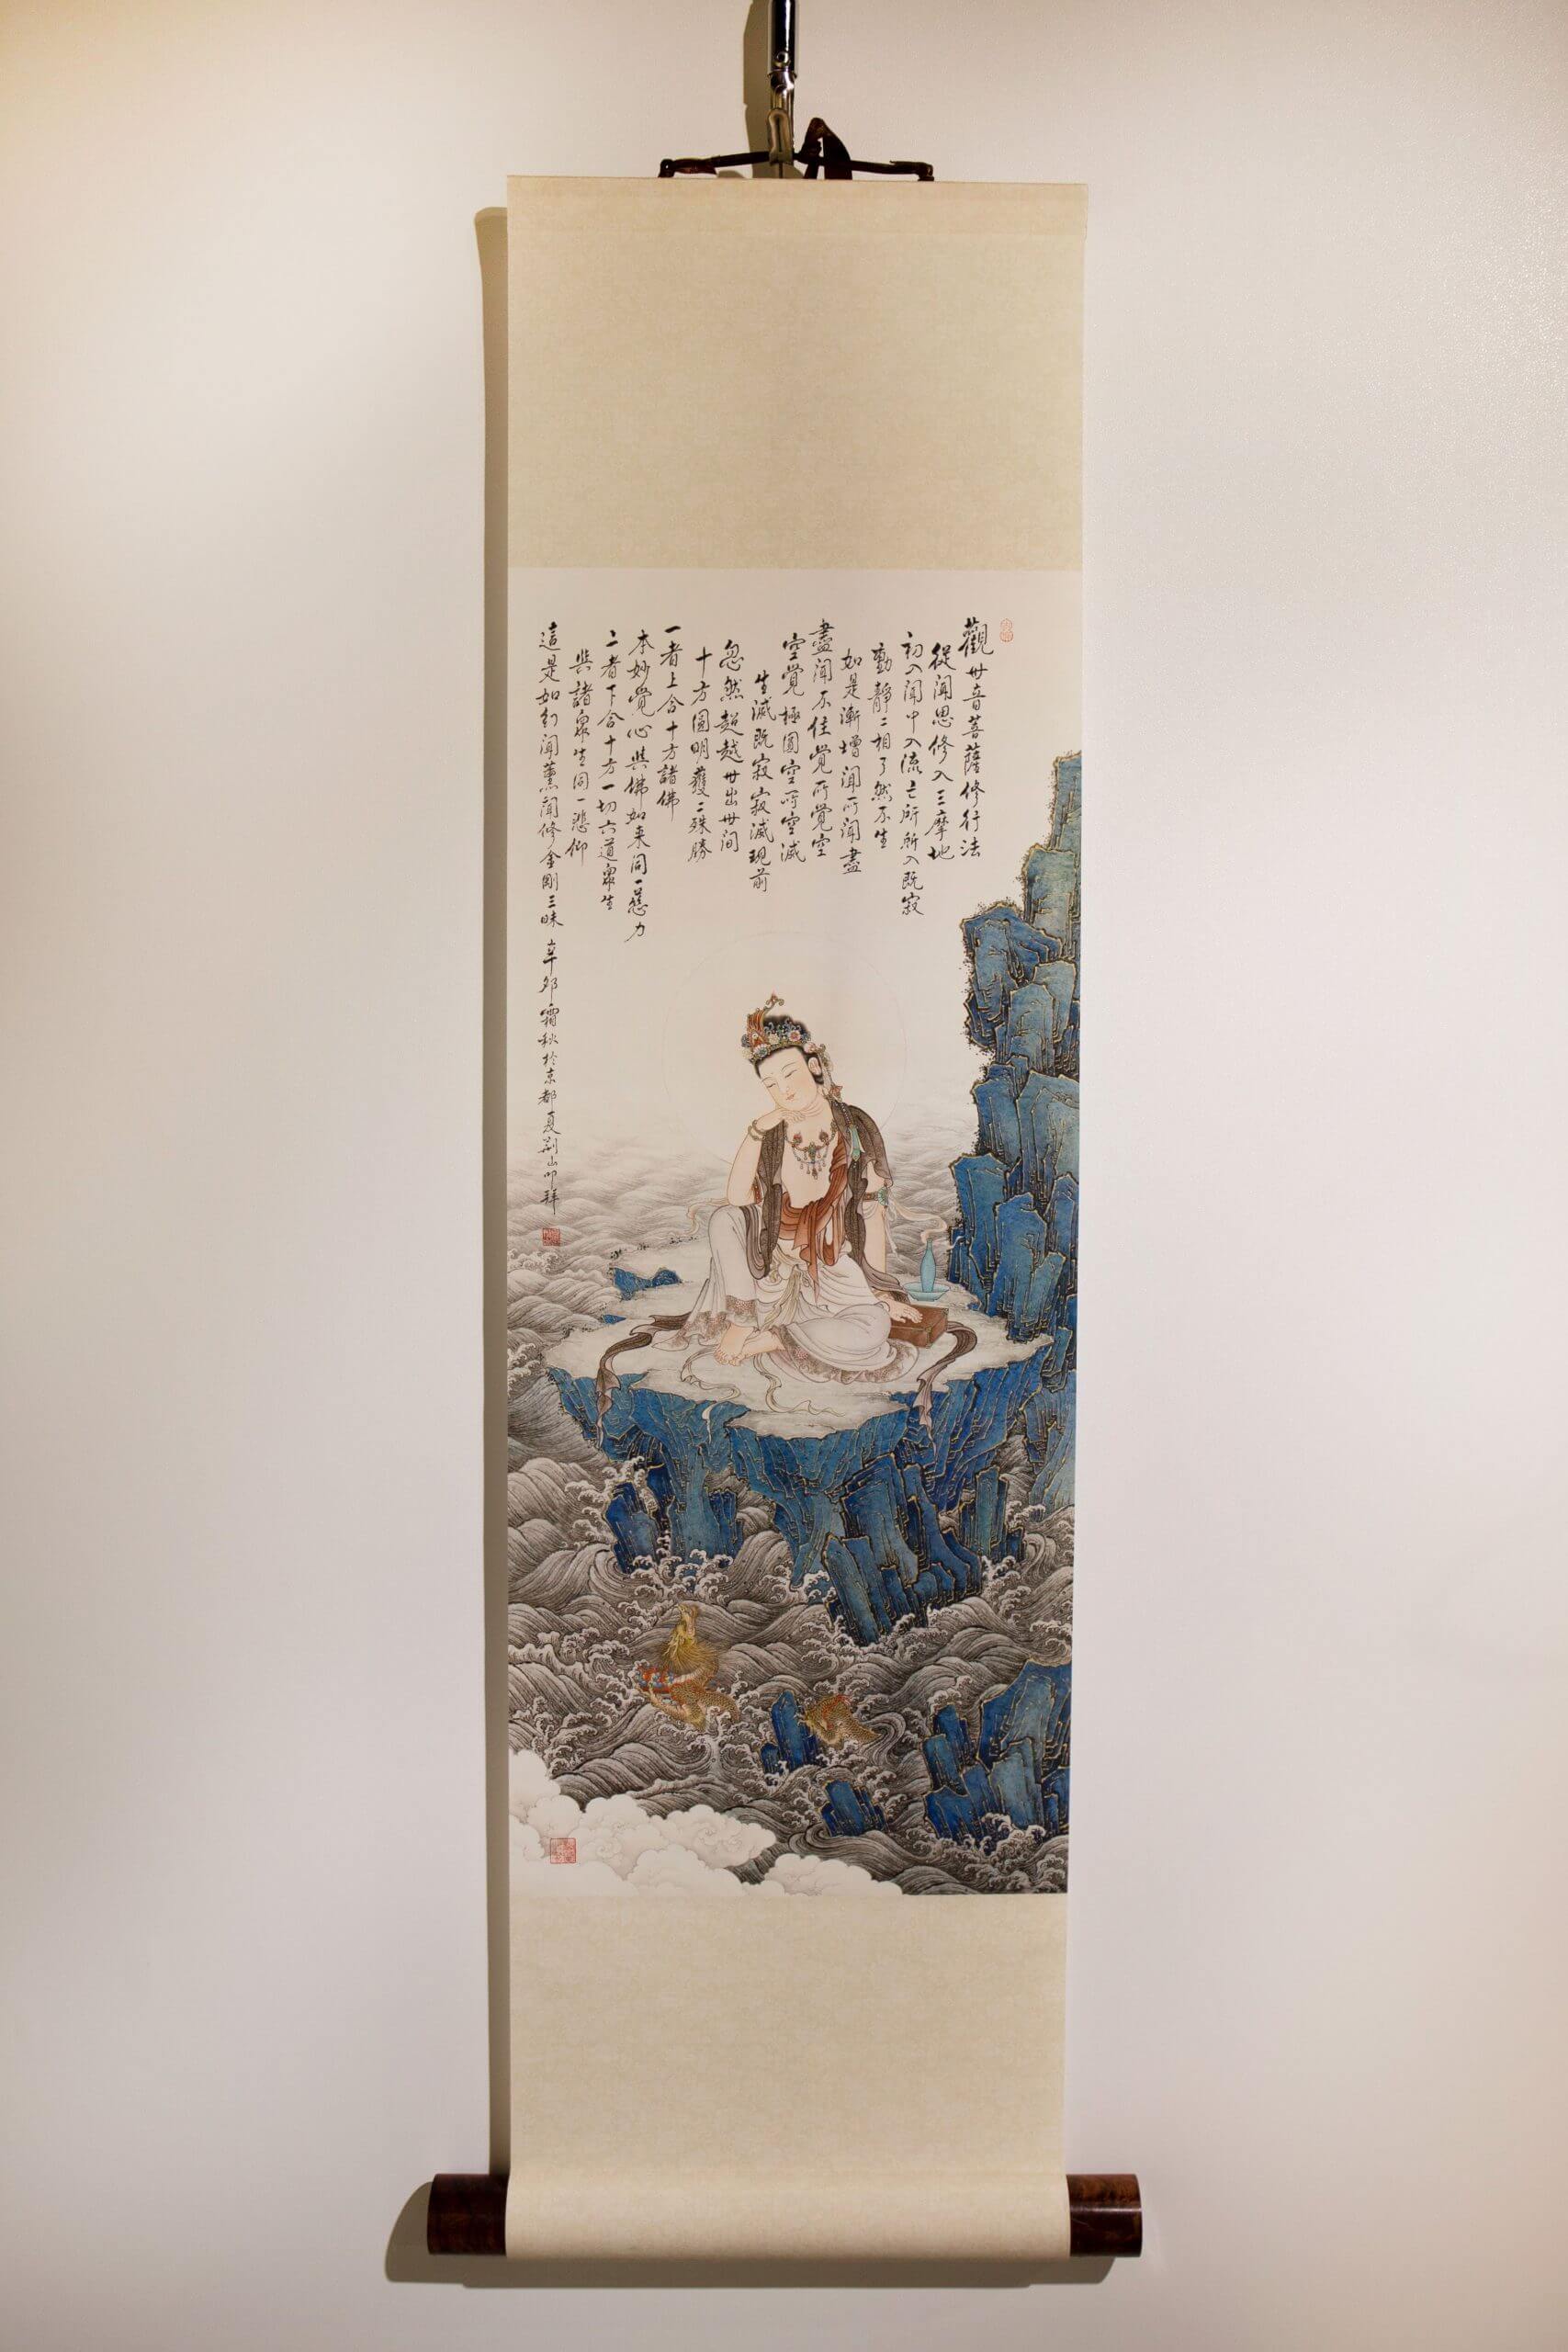 觀世音菩薩修行法
從聞思修入三摩地
初入聞中入流亡所所入既寂
動靜二相了然不生
如是漸增聞所聞盡
盡聞不住覺所覺空
空覺極圓空所空滅
生滅既寂寂滅現前
忽然超越世出世間
十方圓明獲二殊勝
一者上合十方諸佛
本妙覺心與佛如来同一慈力
二者下合十方一切六道眾生
與諸眾生同一悲仰
這是如幻聞薰聞修金剛三昧 辛卯霜秋於京都夏荆山叩拜